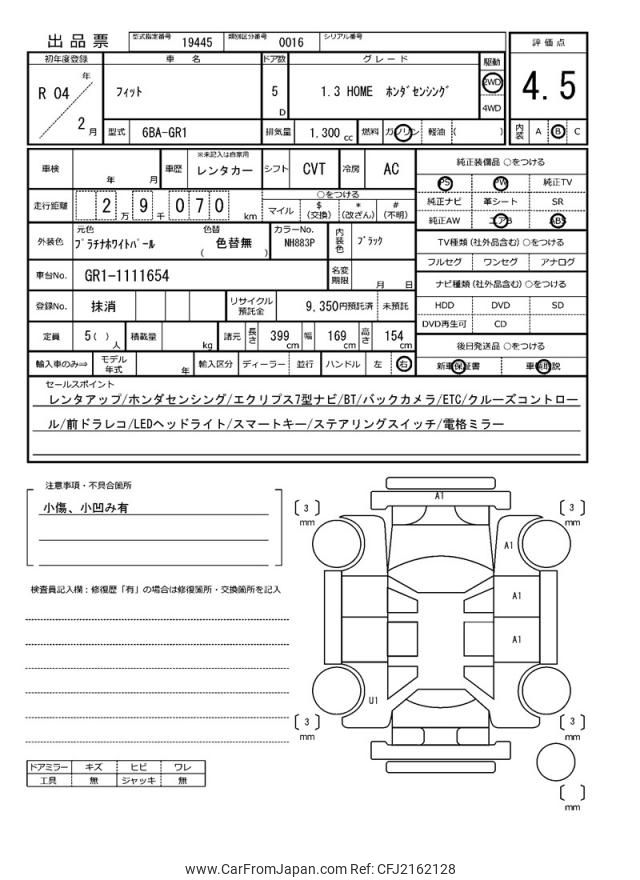 出品票 型式指定番号 19445 類別区分番号 0016 シリアル番号
評価点
4.5
内装 A B C
初年度登録 車名 ドア数 グレード 駆動
R 04 年 2 月
フィット 5 D 1.3 HOME ホンダセンシング 2WD 4WD
型式 6BA-GR1 排気量 1.300 cc 燃料 ガソリン 軽油 ( )
車検 年 月 車歴 ※未記入は自家用 レンタカー シフト CVT 冷房 AC
走行距離 2 万 9 千 0 7 0 km
○をつける
マイル $ (交換) * (改ざん) # (不明)
外装色 元色 プラチナホワイトパール 色替 ( 色替無 ) カラーNo. NH883P 内装色 ブラック
車台No. GR1-1111654 名変期限 月 日
登録No. 抹消 リサイクル預託金 9,350円預託済 未預託
定員 5 ( ) 人 積載量 kg 諸元 長さ 399 cm 幅 169 cm 高さ 154 cm
輸入車のみ⇒ モデル年式 年 輸入区分 ディーラー 並行 ハンドル 左 右
純正装備品 ○をつける
PS PW 純正TV
純正ナビ 革シート SR
純正AW エアB ABS
TV種類 (社外品含む) ○をつける
フルセグ ワンセグ アナログ
ナビ種類 (社外品含む) ○をつける
HDD DVD SD
DVD再生可 CD
後日発送品 ○をつける
新車保証書 車輌取説
セールスポイント
レンタアップ/ホンダセンシング/エクリプス7型ナビ/BT/バックカメラ/ETC/クルーズコントロー
ル/前ドラレコ/LEDヘッドライト/スマートキー/ステアリングスイッチ/電格ミラー
注意事項・不具合箇所
小傷、小凹み有
検査員記入欄：修復歴「有」の場合は修復箇所・交換箇所を記入
ドアミラー キズ ヒビ ワレ
工具 無 ジャッキ 無
A1
3 mm
3 mm
A1
A1
A1
U1
3 mm
3 mm
mm
www.CarFromJapan.com Ref: CFJ2162128